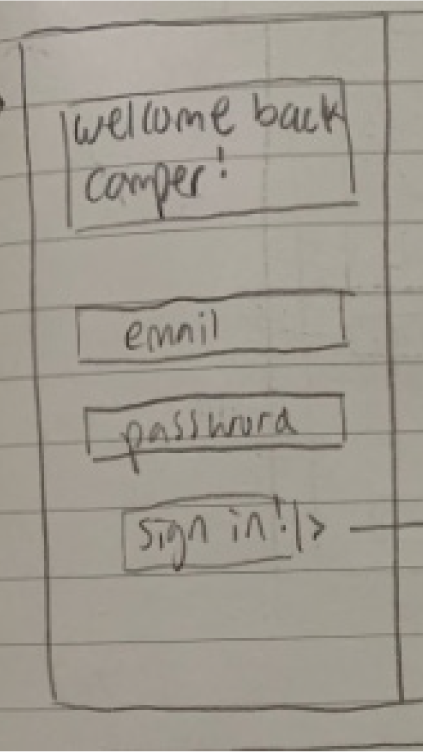 welcome back
camper!
email
password
sign in! >